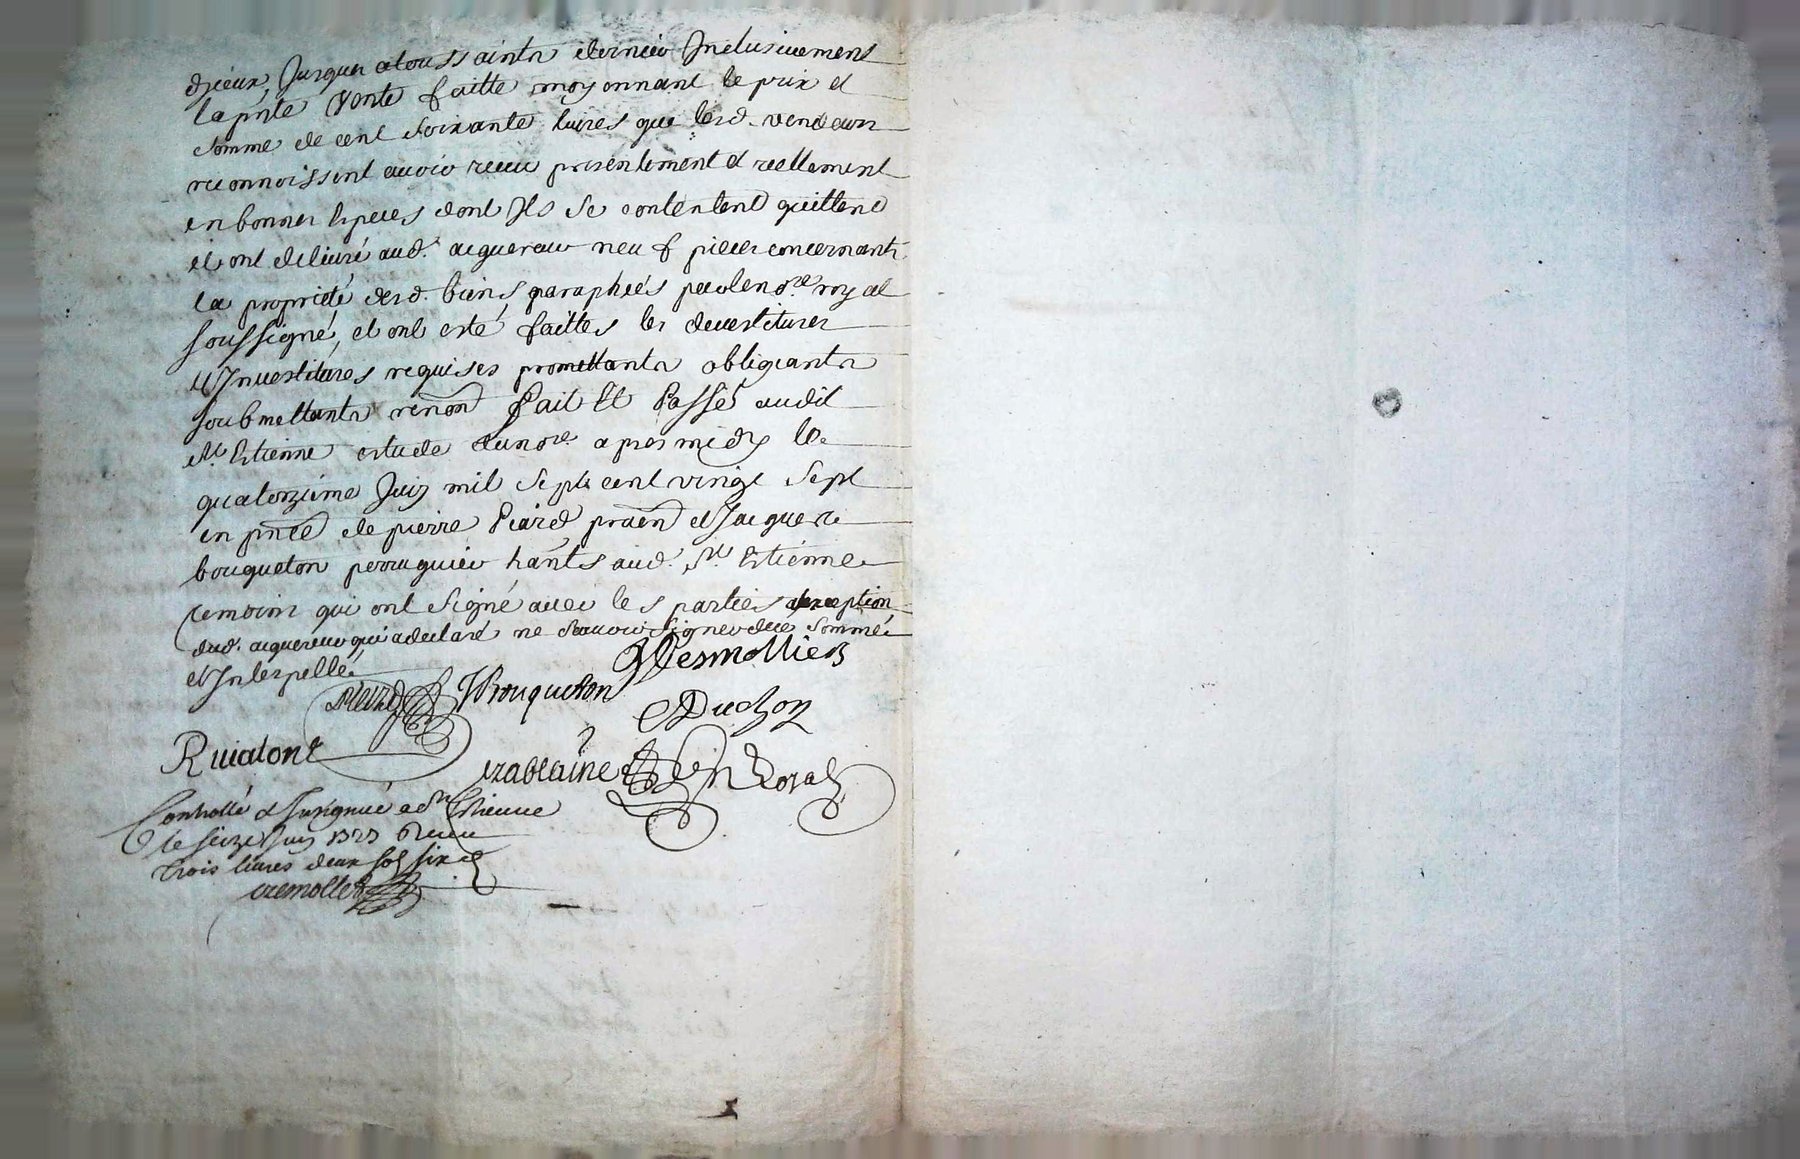 dyceux, Jusques a toussaints dernier Inclusivement
la pnte Vente faitte moyonnant le prix et
somme de cent soixante livres que lesd. vendeurs
reconnoissent avoir receu presentement et reellement
en bonnes especes dont Ils se contentent quittent
et ont delivré aud. acquereur neuf pieces concernants
la propriété desd. biens paraphées par le nore. royal
soussigné, et ont esté faittes les devestitures
et Investitures requises promettants obligeants
soubmettants renon Fait Et Passé audit
St. Estienne estude dunore. apres midy le
quatorzieme Juin mil sept cent vingt sept
en pnce de pierre Peird praen et Jacques
bouqueton perruquier hants aud. St. Estienne
temoins qui ont signé avec les parties a lexception
dud. acquereur qui a declaré ne scavoir signer dece sommé
et Interpellé
Desmolliers
Peird JBouqueton
Duchon
Rivalont
Royal
Controllé et Insignué a St Estienne
le seize Juin 1727 Receu
trois livres deux sols six d